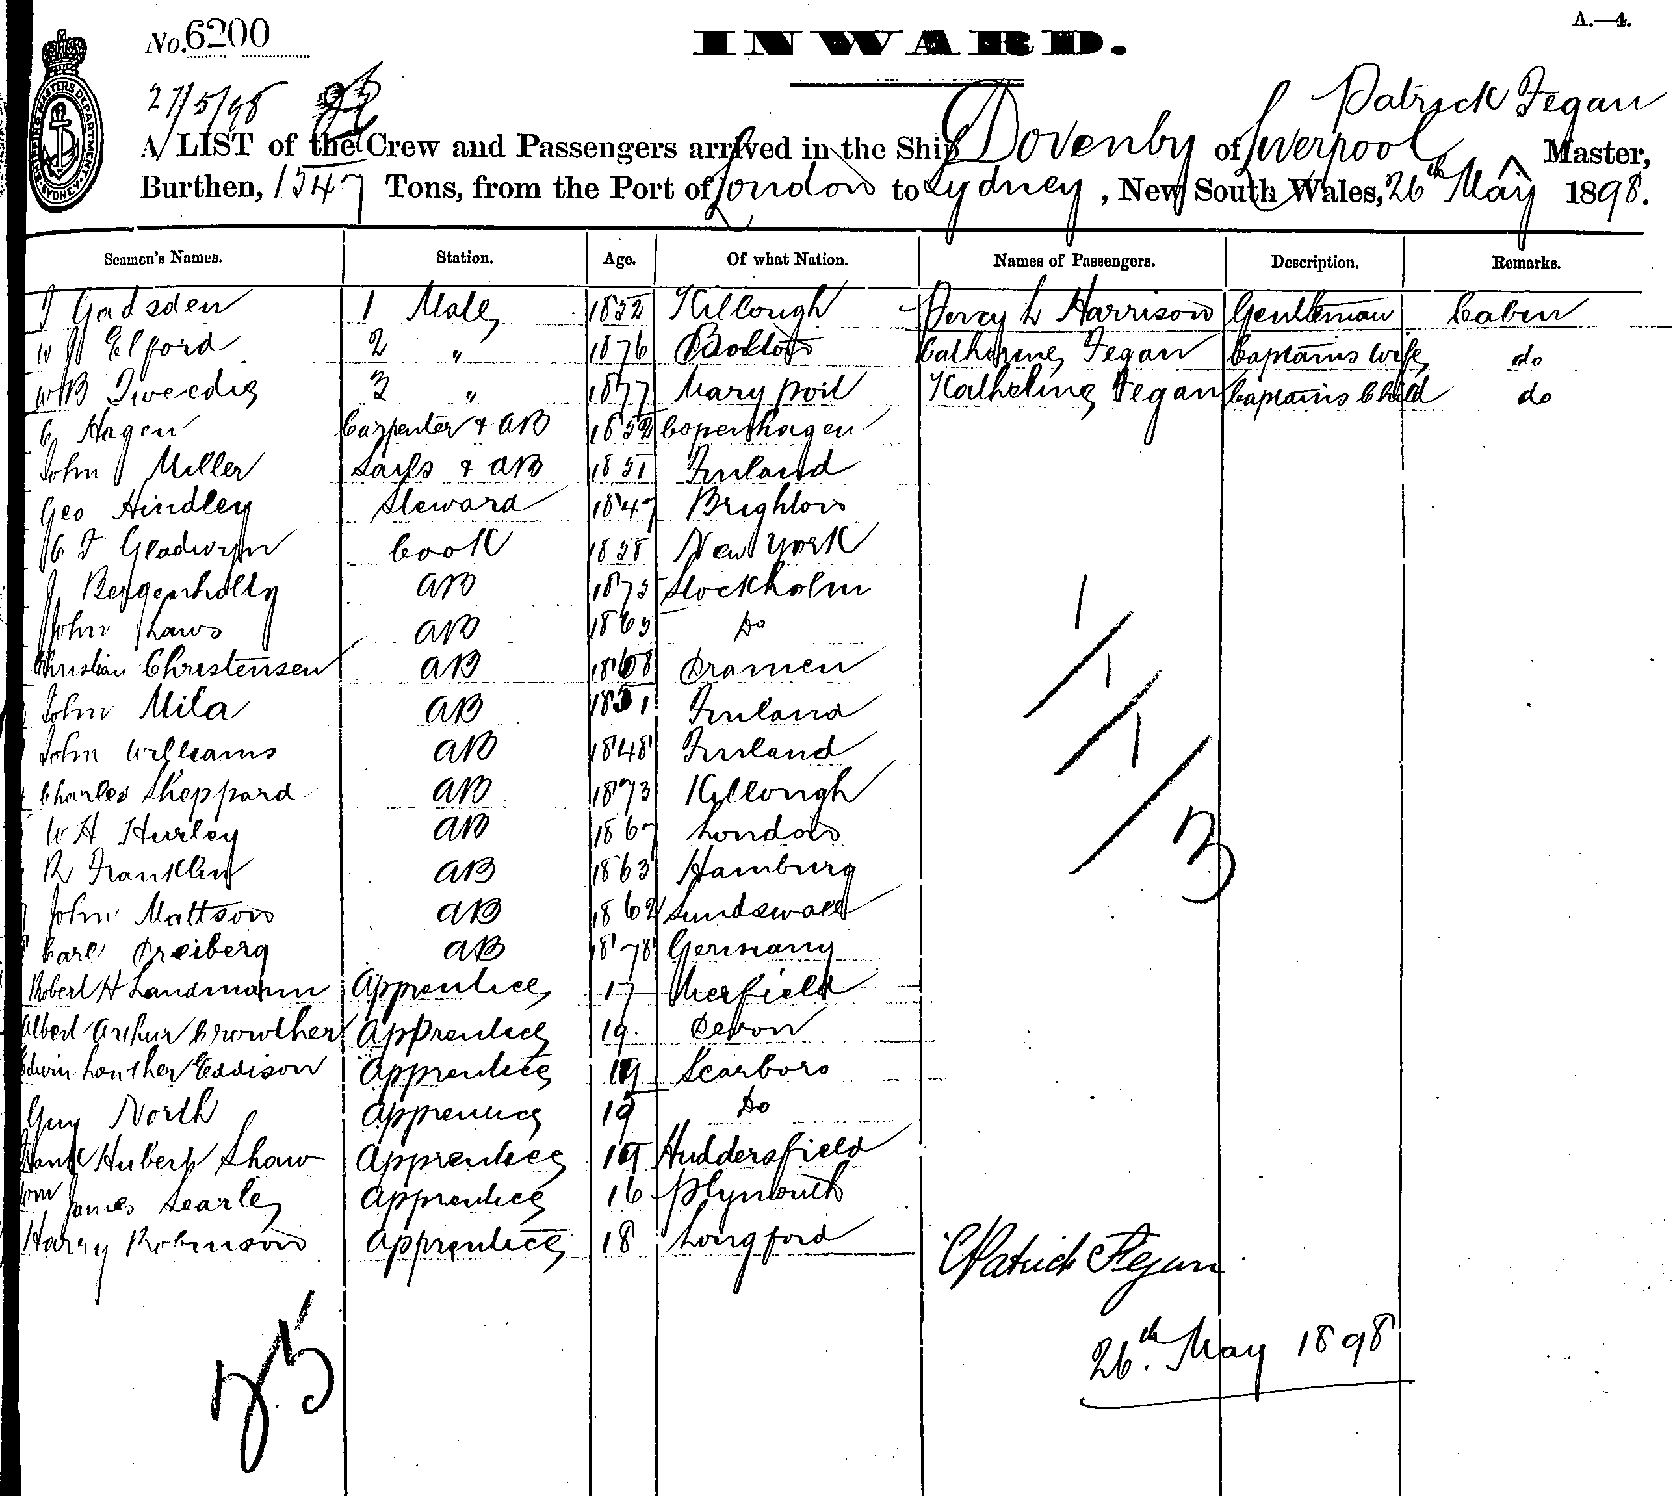 No. 6200
INWARD.
A.—4.
27/5/98
Patrick Fegan
A LIST of the Crew and Passengers arrived in the Ship Dovenby of Liverpool Master,
Burthen, 1547 Tons, from the Port of London to Sydney, New South Wales, 26th May 1898.
Seamen's Names. Station. Age. Of what Nation. Names of Passengers. Description. Remarks.
Gadsden 1 Mate 1852 Killough Percy L Harrison Gentleman Cabin
Elford 2 " 1876 Bolton Catherine Fegan Captains wife do
W B Tweedie 3 " 1877 Mary Port Katheline Fegan Captains Child do
C Hagen Carpenter & AB Copenhagen
John Miller Sails & AB 1851 Finland
Geo Hindley Steward 1847 Brighton
C F Gladwyn Cook 1858 New York
J AB 1875 Stockholm
John AB 1865 Do
Christian Christensen AB 1868 Dramen
John Mila AB Finland
John Williams AB 1848 Finland
Charles Sheppard AB 1873 Killough
W H Hurley AB 1867 London
R Franklin AB 1863 Hamburg
John Mattson AB 1862 Sundswall
Carl Dreiberg AB 1878 Germany
Robert H Landmann Apprentice 17
Albert Arthur Crowther Apprentice 19 Devon
Edwin Lowther Eddison Apprentice 19 Scarboro
Guy North Apprentice 19 Do
Hubert Shaw Apprentice 19 Huddersfield
James Searle Apprentice 16 Plymouth
Harry Robinson Apprentice 18 Longford
1/1/1/3
Patrick Fegan
26th May 1898
25